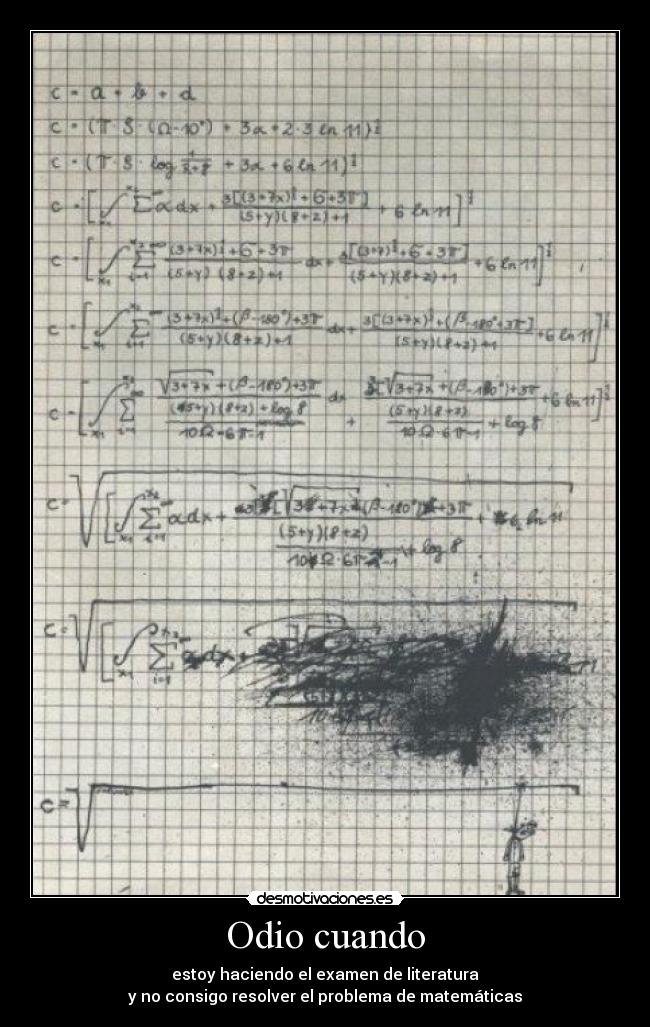 c = a + b + d
c = (π · S · (Ω-10°) + 3α + 2·3 ln 11)^½
c = (π · S · log + 3α + 6 ln 11)^½
c = [∫ Σ α dx + 3[(3+7x)^½ + 6 + 3π] / (5+y)(8+z)+1 + 6 ln 11]^½
c = [∫ Σ (3+7x)^½ + 6 + 3π / (5+y)(8+z)+1 dx + 3[(3+7x)^½ + 6 + 3π] / (5+y)(8+z)+1 + 6 ln 11]^½
c = [∫ Σ (3+7x)^½ + (β-180°) + 3π / (5+y)(8+z)+1 dx + 3[(3+7x)^½ + (β-180°+3π] / (5+y)(8+z)+1 + 6 ln 11]^½
c = [∫ Σ √3+7x + (β-180°)+3π / (5+y)(8+z) + log 8 / 10Ω-6π-1 dx + 3[√3+7x + (β-180°)+3π / (5+y)(8+z) / 10Ω·6π-1 + log 8 + 6 ln 11]^½
c = √[∫ Σ α dx + √3+7x (β-180°) + 3π / (5+y)(8+z) / 10Ω·6π-1 + log 8 + 6 ln 11
c = √[∫ Σ α dx +
c = √
desmotivaciones.es
Odio cuando
estoy haciendo el examen de literatura
y no consigo resolver el problema de matemáticas